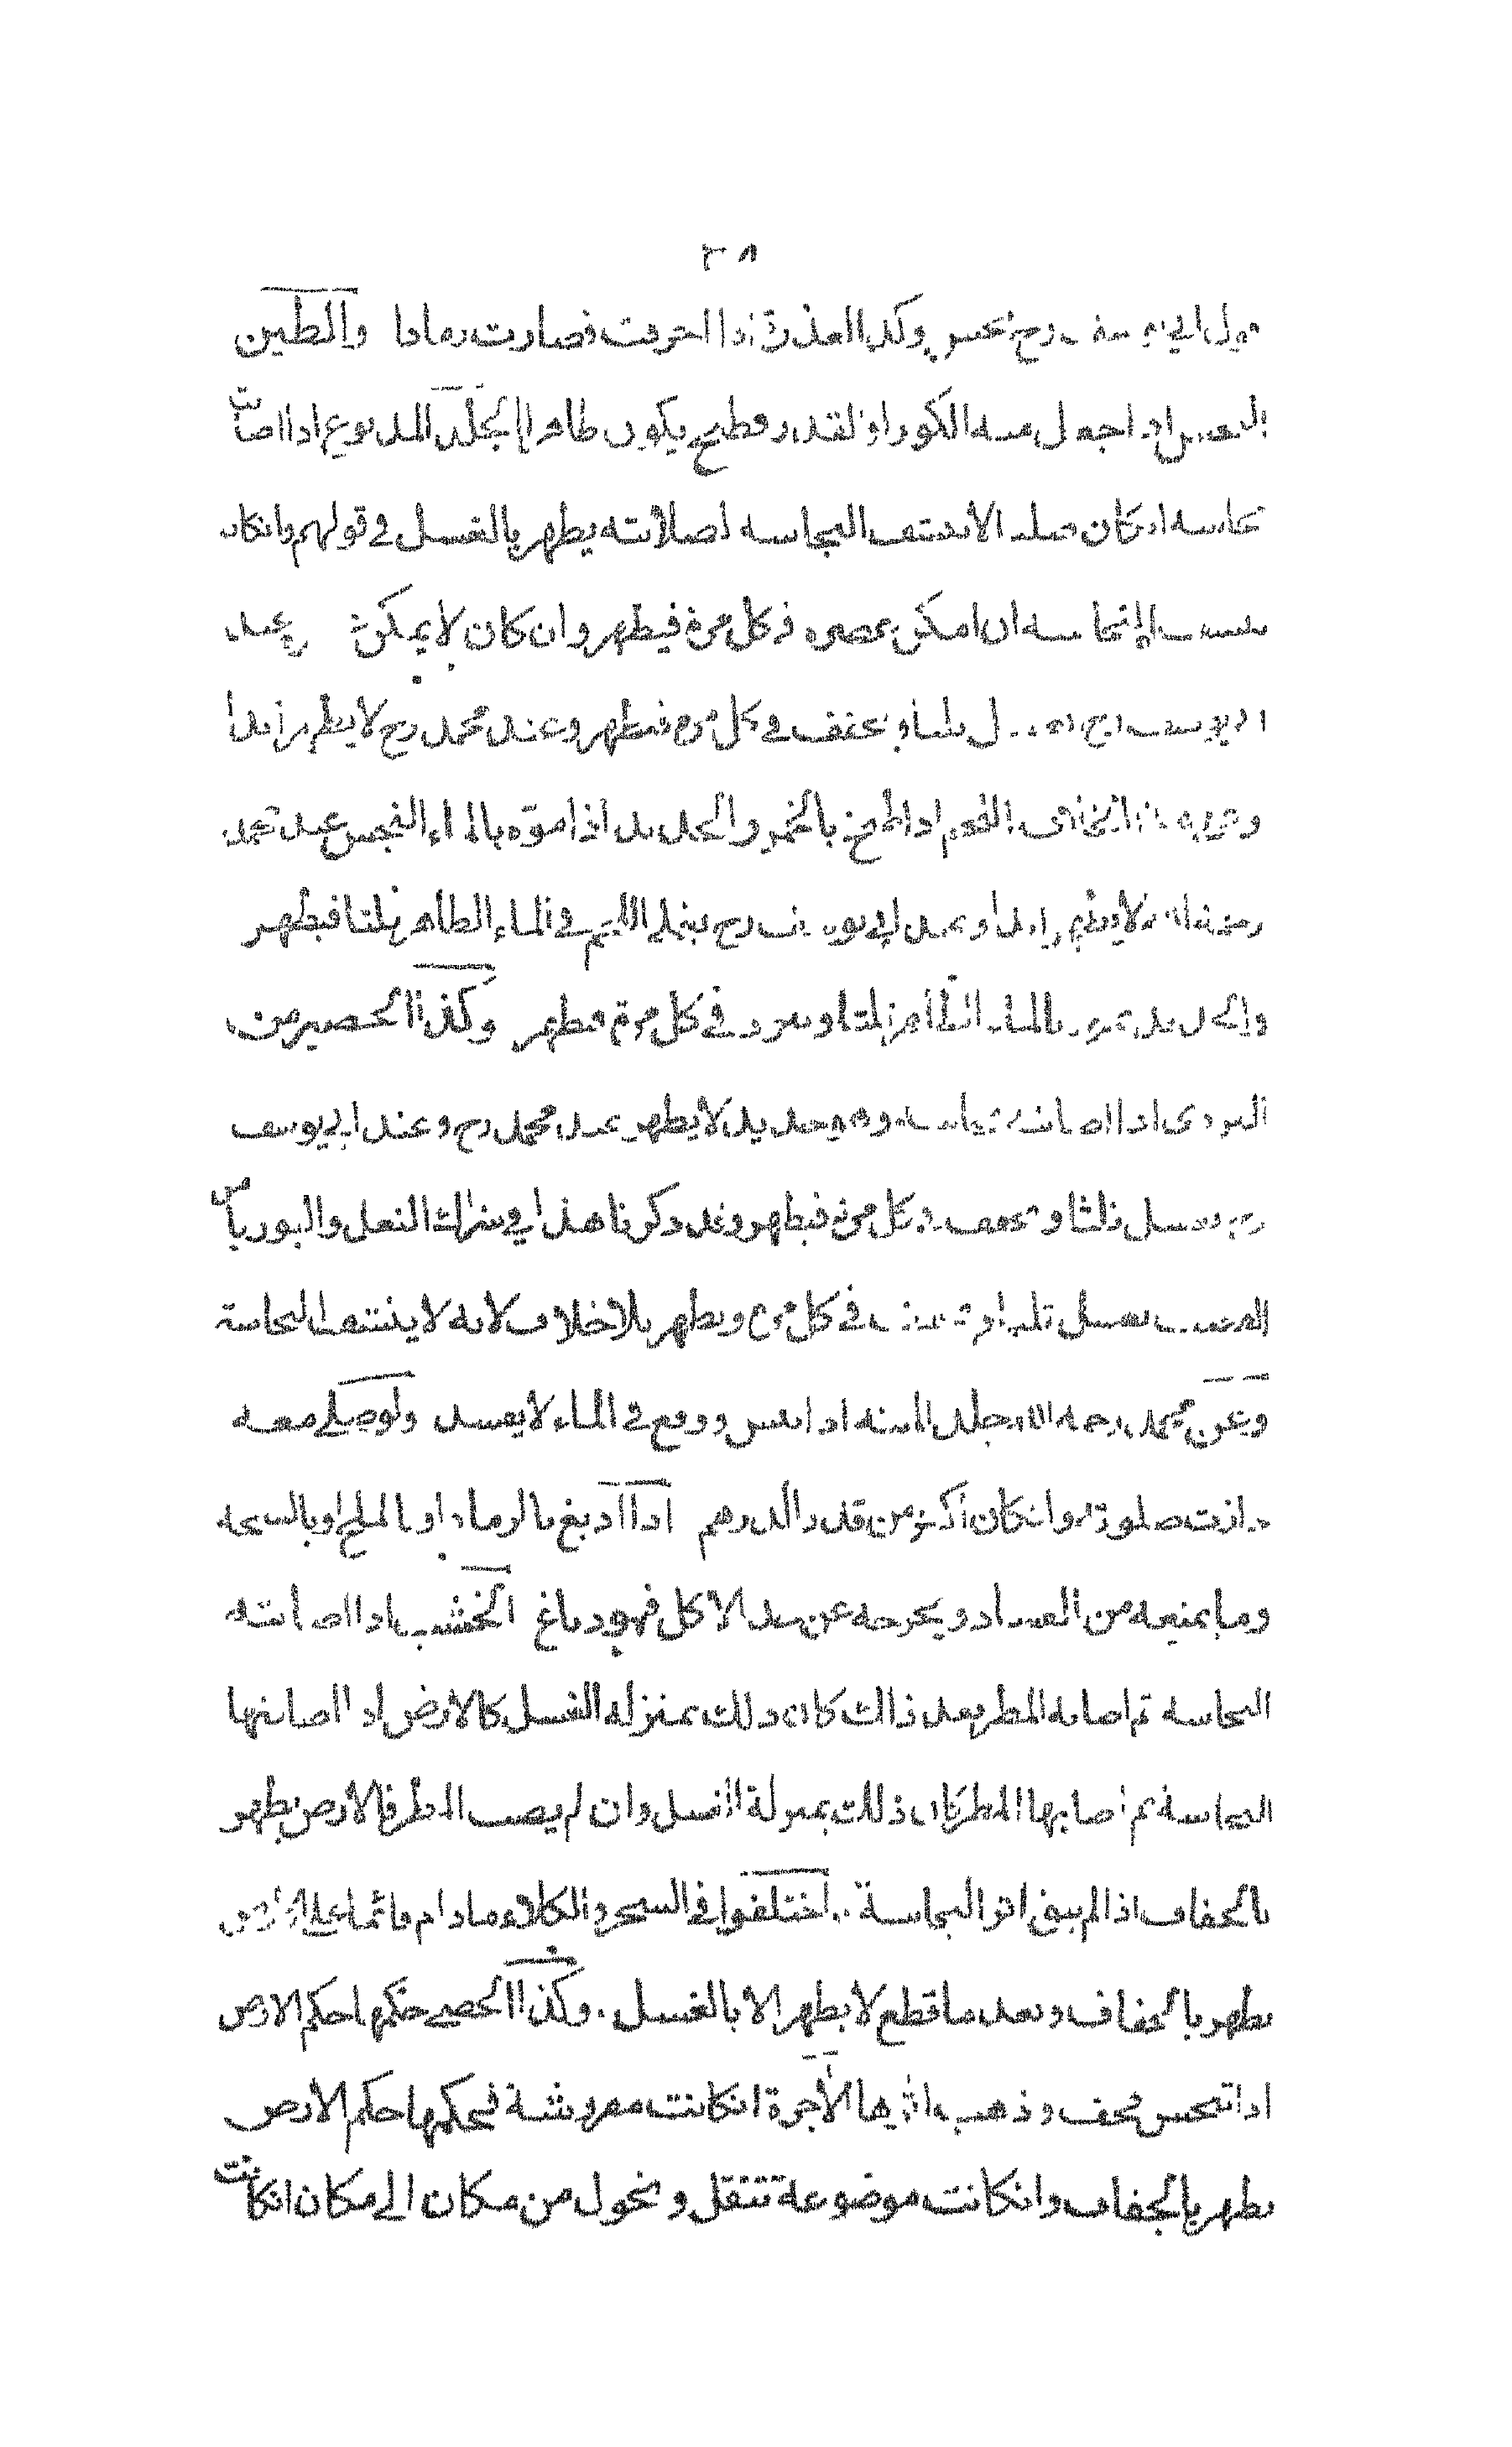 ٣٨
قول ابي يوسف رح نجس وكذا العذرة اذا احرقت فصارت رمادا والطين
النجس اذا جعل منه الكوز او القدر وطبخ يكون طاهرا الجلد المدبوغ اذا اصابت
نجاسة ان كان صلبا لا ينشف النجاسة لصلابته يطهر بالغسل في قولهم وانكان
ينشف النجاسة ان امكن عصره في كل مرة فيطهر وان كان لا يمكن عند
ابي يوسف رح يغسل ثلثا ويجفف في كل مرة فيطهر وعند محمد رح لا يطهر ابدا
وعلى هذا اللحم اذا طبخ بالخمر والحديد اذا موّه بالماء النجس عند محمد
رحمه الله لا يطهر ابدا وعند ابي يوسف رح يغلى اللحم في الماء الطاهر ثلثا فيطهر
والحديد يموه بالماء الطاهر ثلثا ويبرد في كل مرة فيطهر وكذا الحصير من
البردى اذا اصابته نجاسة وهو جديد لا يطهر عند محمد رح وعند ابي يوسف
رح يغسل ثلثا ويجفف في كل مرة فيطهر وقد ذكرنا هذا في شراك النعل والبوريا من
القصب يغسل ثلثا في كل مرة ويطهر بلا خلاف لانه لا ينشف النجاسة
وعن محمد رحمه الله جلد الميتة اذا يبس ووقع في الماء لا يفسد ولو صلى معه
جازت صلوته وانكان اكثر من قدر الدرهم اذا دبغ بالرماد او بالملح او بالسبخه
وما يمنعه من الفساد ويخرجه عن حد الاكل فهو دباغ الخشب اذا اصابته
النجاسة ثم اصابه المطر بعد ذالك كان ذلك بمنزلة الغسل كالارض اذا اصابتها
النجاسة ثم اصابها المطر كان ذلك بمنزلة الغسل وان لم يصب المطر فالارض يطهر
بالجفاف اذا لم يبق اثر النجاسة اختلفوا في الشجر والكلاء ما دام قائما على الارض
يطهر بالجفاف وبعد ما قطع لا يطهر الا بالغسل وكذا الحصى حكمها حكم الارض
اذا تنجس فجف وذهب اثرها الآجرة انكانت مفروشة فحكمها حكم الارض
يطهر بالجفاف وانكانت موضوعة تنقل وتحول من مكان الى مكان انكانت